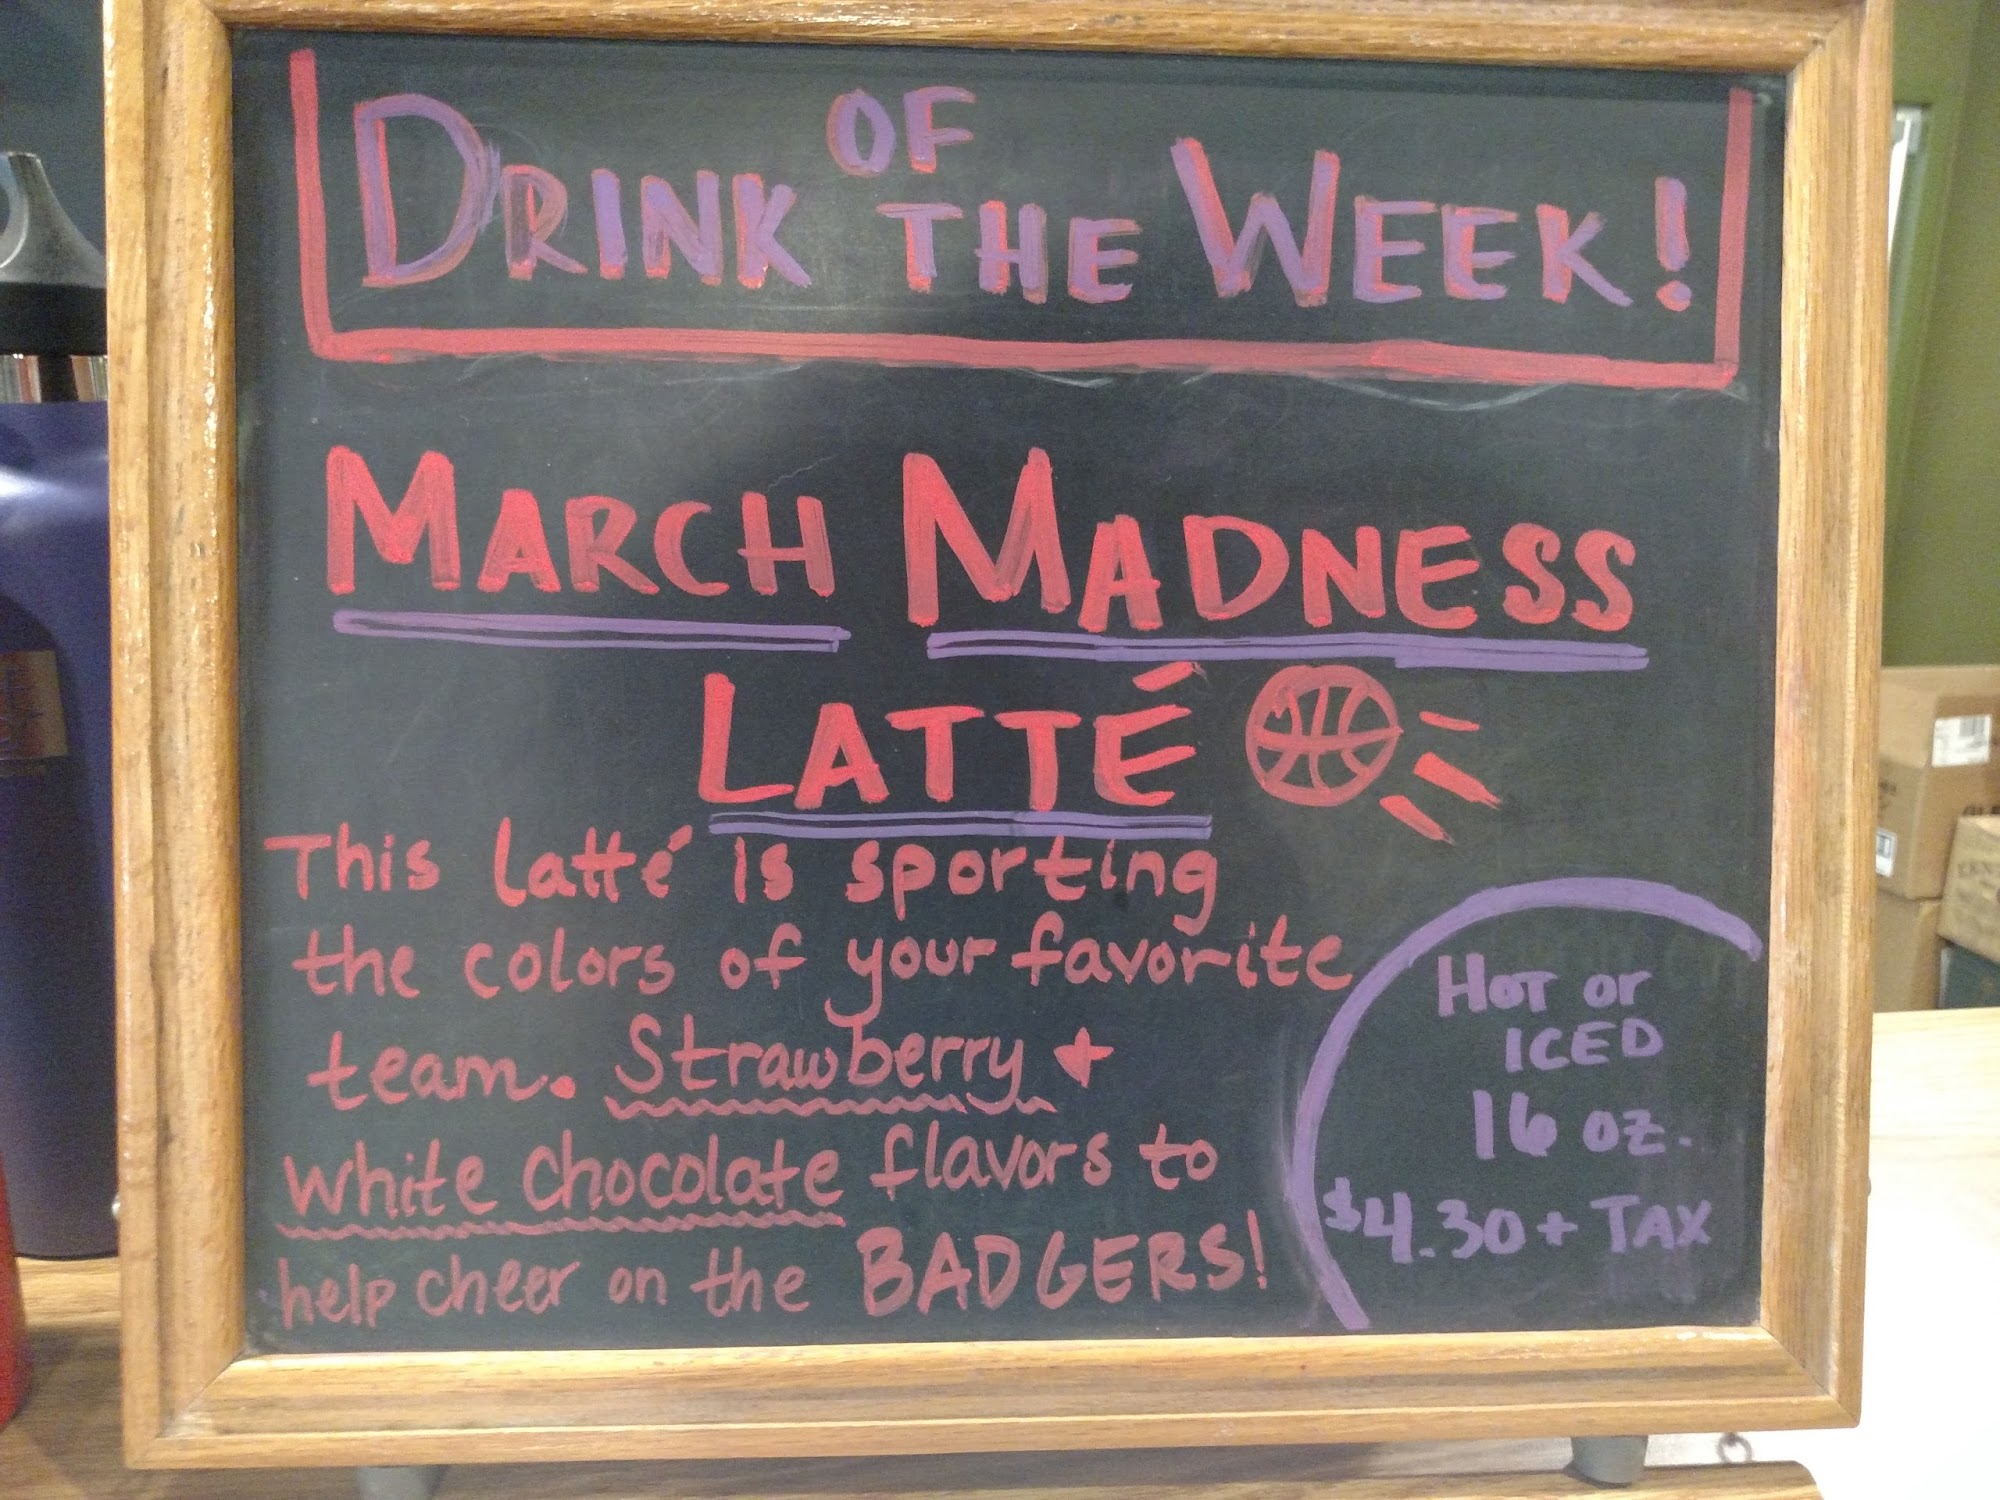 DRINK OF THE WEEK!
MARCH MADNESS
LATTÉ
This latté is sporting
the colors of your favorite
team. Strawberry +
white chocolate flavors to
help cheer on the BADGERS!
HOT or
ICED
16 oz.
$4.30 + TAX